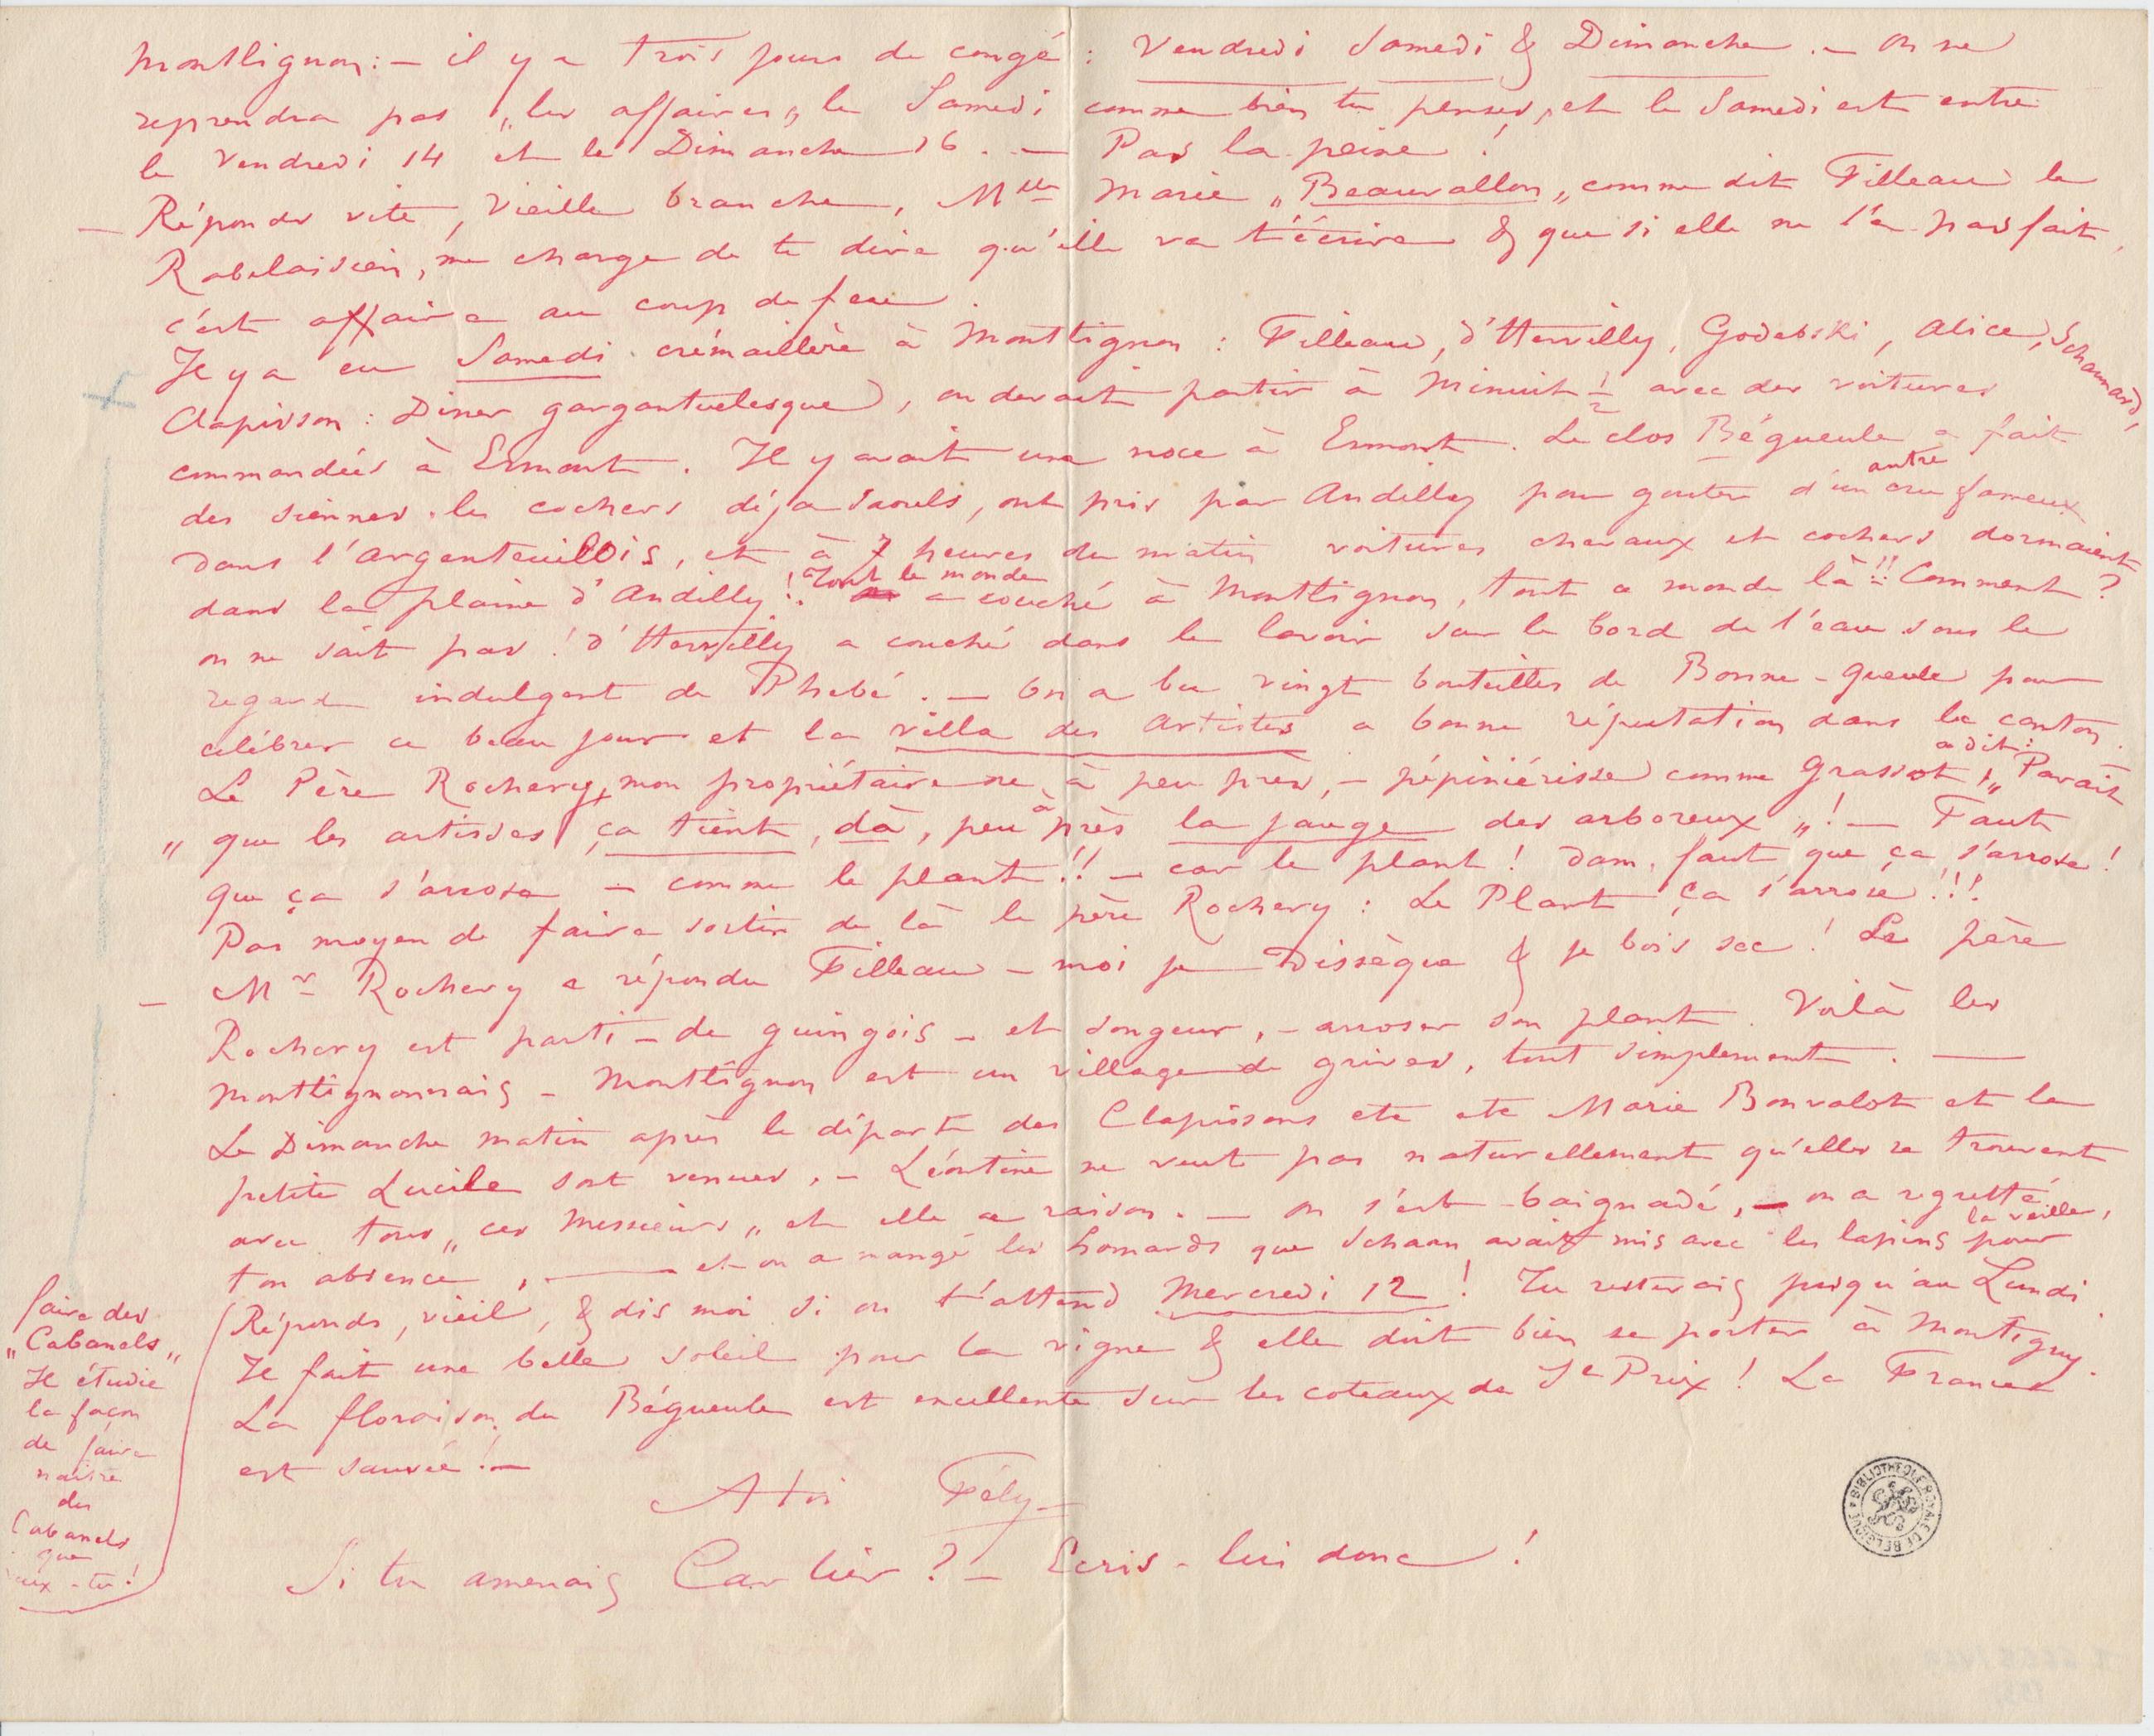 Montlignon : — il y a trois jours de congé : Vendredi Samedi & Dimanche. — On ne
reprendra pas „les affaires„ le Samedi comme bien tu penses, et le Samedi est entre
le Vendredi 14 et le Dimanche 16. — Pas la peine !
— Réponds vite, Vieille branche, Mlle Marie „Beauvallon„ comme dit Filleau le
Rabelaisien, me charge de te dire qu'elle va t'écrire & que si elle ne l'a pas fait,
c'est affaire au coup de feu.
Il y a eu Samedi crémaillère à Montlignon : Filleau, d'Hervilly, Godebski, Alice, Schaunard,
Clapisson : Diner gargantuelesque, on devait partir à Minuit ½ avec des voitures
commandées à Ermont. Il y avait une noce à Ermont. Le clos Bégueule a fait
des siennes. les cochers déja saouls, ont pris par Andilly pour gouter d'un autre cru fameux
dans l'argenteuillois, et à 7 heures du matin voitures chevaux et cochers dormaient
dans la plaine d'Andilly !! Tout le monde a couché à Montlignon, tout ce monde là !!! Comment ?
on ne sait pas ! d'Hervilly a couché dans le lavoir sur le bord de l'eau sous le
regard indulgent de Phebé. — On a bu vingt bouteilles de Bonne-gueule pour
célébrer ce beau jour et la villa des Artistes a bonne réputation dans le canton.
Le Père Rochery, mon propriétaire ne à peu près, — pépiniérisse comme Grassot, a dit : „Parait
„ que les artisses ça tient, dà, peu à près la jauge des arboreux„ ! — Faut
que ça s'arrose — comme le plant !! — car le plant ! dam, faut que ça s'arrose !
Pas moyen de faire sortir de là le père Rochery : Le Plant ça s'arrose !!!
— Mr Rochery a répondu Filleau — moi je Dissèque & je bois sec ! Le père
Rochery est parti — de guingois — et songeur, — arroser son plant. Voilà les
Montlignonnais — Montlignon est un village de grives, tout simplement. —
Le Dimanche matin après le départ des Clapissons etc etc Marie Bonvalot et la
petite Lucile sont venues. — Léontine ne veut pas naturellement qu'elles se trouvent
avec tous „ces Messieurs„ et elle a raison. — On s'est baignadé, — on a regretté
ton absence, — et on a mangé les homards que Schaun avait mis avec les lapins la veille, pour
faire des
„Cabanels„
Il étudie
la façon
de faire
naitre
des
Cabanels
que
veux-tu !
Réponds, vieil, & dis moi si on t'attend Mercredi 12 ! Tu resterais jusqu'au Lundi.
Il fait une belle soleil pour la vigne & elle doit bien se porter à Montigny.
La floraison du Bégueule est excellente sur les coteaux de St Prix ! La France
est sauvée ! —
A toi Fély
Si tu amenais Carlier ? — Ecris-lui donc !
BIBLIOTHÈQUE ROYALE DE BELGIQUE